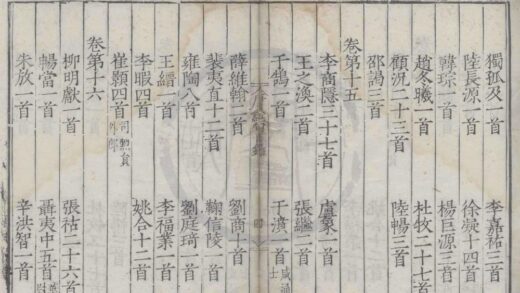 獨孤及一首 李嘉祐三首
陸長源一首 徐凝十四首
韓琮一首 楊巨源三首
趙冬曦一首 杜牧二十七首
顧況二十三首 陸暢三首
邵謁三首
卷第十五
李商隱三十七首 盧象一首
王之渙二首 張繼二首
于鵠一首 于濆一首 咸通 士
薛維翰二首 劉商十首
裴夷直十二首 鞠信陵一首
雍陶八首 劉庭琦一首
王縉一首 李福業一首
李暇四首 姚合十二首
崔顥四首 司勲員外郎
卷第十六
柳明獻一首 張祜二十六首
暢當一首 聶夷中五首
朱放一首 辛洪智一首